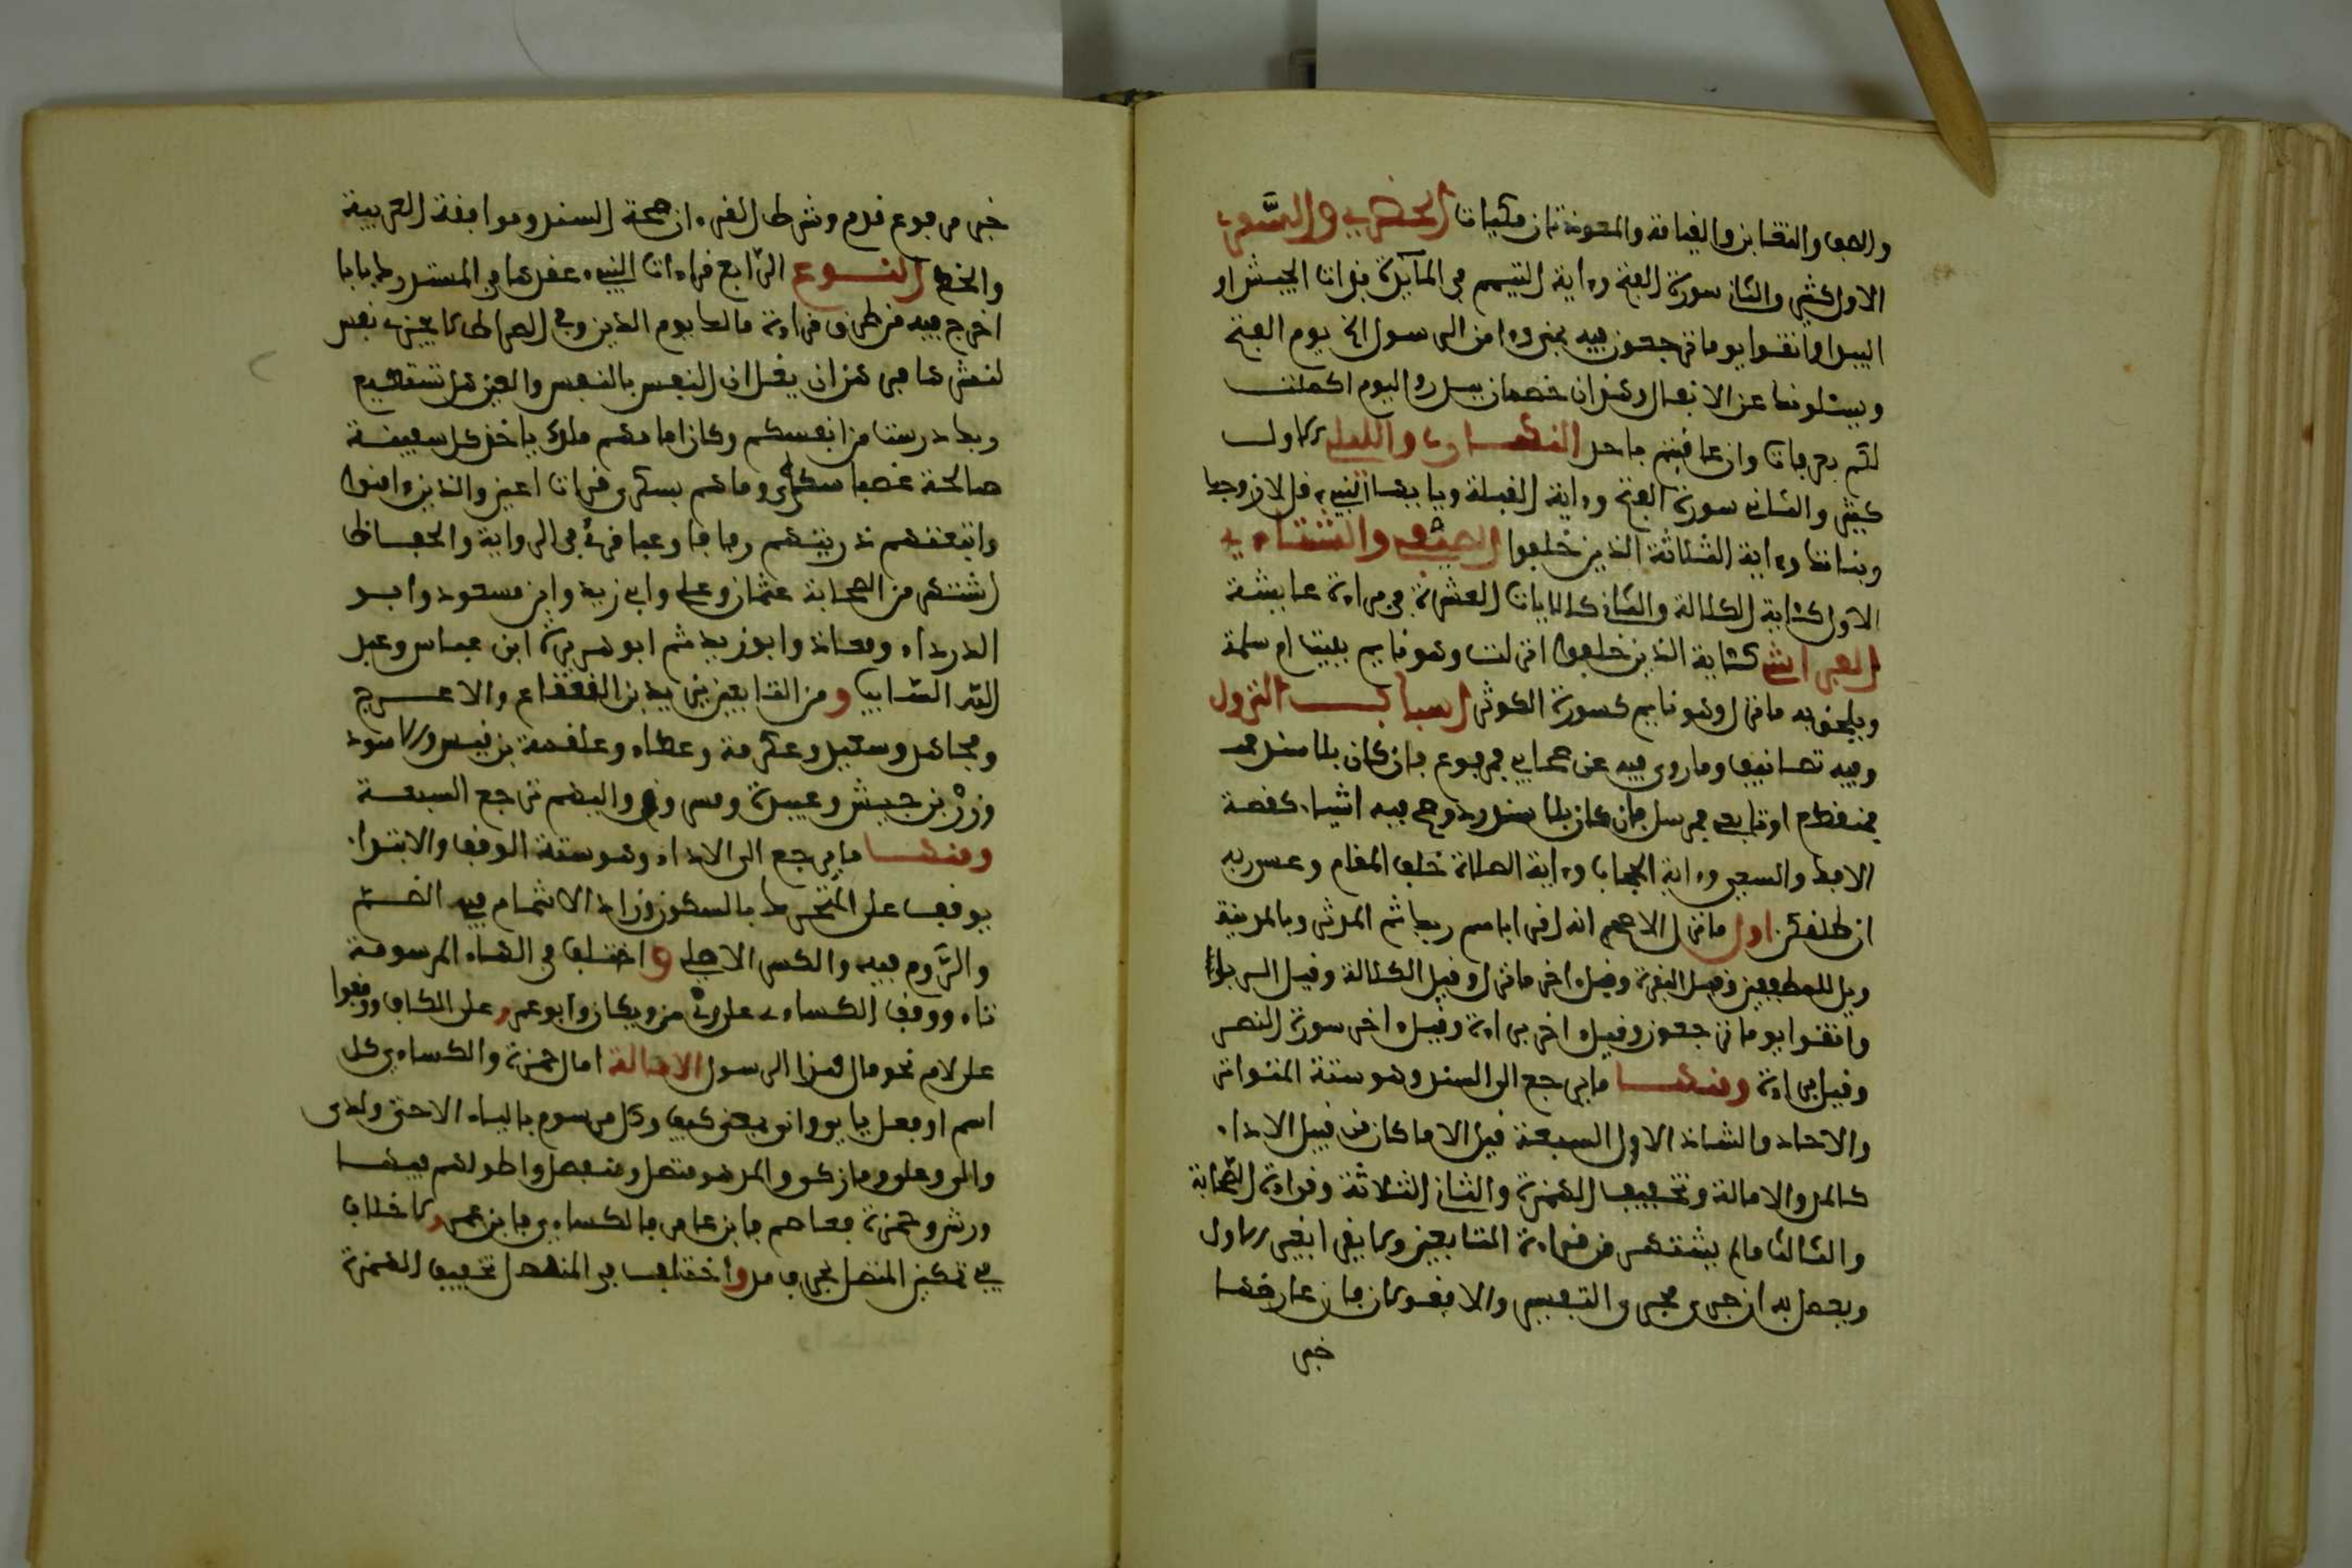 والصف والتغابن والقيامة والمعوذتان مكيات الحضري والسفري
الاول كثير والثاني سورة الفتح وءاية التيمم في المائدة بذات الجيش او
البيدا واتقوا يوما ترجعون فيه بمنى وءامن الرسول الخ يوم الفتح
ويسئلونك عن الانفال وهذان خصمان ببدر واليوم اكملت
لكم بعرفات وان عاقبتم باحد النهاري والليلي الاول
كثير والثاني سورة الفتح وءاية القبلة ويايها النبيء قل لازوجك
وبناتك وءاية الثلاثة الذين خلفوا الصيفي والشتاءي
الاول كئاية الكلالة والثاني كالايات العشرة في براءة عايشة
الفراشي كئاية الذين خلفوا انزلت وهو نايم ببيت ام سلمة
ويلحق به ما نزل وهو نايم كسورة الكوثر اسباب النزول
وفيه تصانيف وما روي فيه عن صحابي فمرفوع فان كان بلا سند
فمنقطع او تابعي فمرسل فان كان بلا سند رد وصح فيه اشياء كقصة
الافك والسعي وءاية الحجاب وءاية الصلاة خلف المقام وعسى ربه
ان طلقكن اول ما نزل الاصح انه اقرا باسم ربك ثم المدثر وبالمدينة
ويل للمطففين وقيل البقرة وقيل ءاخر ما نزل وقيل الكلالة وقيل الربا
واتقوا يوما ترجعون وقيل ءاخر براءة وقيل ءاخر سورة النصر
وقيل براءة ومنها ما يرجع الى السند وهو ستة المتواتر
والاحاد والشاذ الاول السبعة قيل الا ما كان من قبيل الاداء
كالمد والامالة وتخفيف الهمزة والثاني الثلاثة وقراءة الصحابة
والثالث ما لم يشتهر من قراءة التابعين ولا يقرا بغير الاول
ويعمل به ان جرى مجرى التفسير والا فقولان فان عارضها
خبر
خبر مرفوع قدم وشرط القرءان صحة السند وموافقة العربية
والخط النوع الرابع قراءات النبيء عقد لها في المستدرك بابا
اخرج فيه من طرق قراءة مالك يوم الدين وفي الصراط لا تجزي نفس
ننشرها فرهن ان يغل ان النفس بالنفس والعين هل تستطيع
ربك درست من انفسكم وكان امامهم ملك ياخذ كل سفينة
صالحة غصبا سكرى وما هم بسكرى قرات اعين والذين ءامنوا
واتبعتهم ذريتهم رفارف وعباقري الرواة والحفاظ
اشتهر من الصحابة عثمان وعلي وابي زيد وابن مسعود وابو
الدرداء ومعاذ وابو زيد ثم ابو هريرة ابن عباس وعبد
الله السايب ومن التابعين يزيد بن القعقاع والاعرج
ومجاهد وسعيد وعكرمة وعطاء وعلقمة بن قيس والاسود
وزر بن حبيش وعبيدة ومسروق واليهم ترجع السبعة
ومنها ما يرجع الى الاداء وهو ستة الوقف والابتداء
يوقف على المتحرك بالسكون وزاد الاشمام فيه الضم
والروم فيه والكسر الاصلي واختلف في الهاء المرسومة
تاء ووقف الكساءي على وي من ويكان وابو عمرو على الكاف ووقفوا
على لام نحو مال هذا الرسول الامالة امال حمزة والكساءي كل
اسم او فعل يايي وانى بمعنى كيف وكل مرسوم بالياء الا حتى ولدى
والى وعلى وما زكى والمد هو متصل ومنفصل واطولهم فيهما
ورش وحمزة فعاصم فابن عامر فالكساءي فابن عمرو ولا خلاف
في تمكين المتصل بحرف مد واختلف في المنفصل تخفيف الهمزة